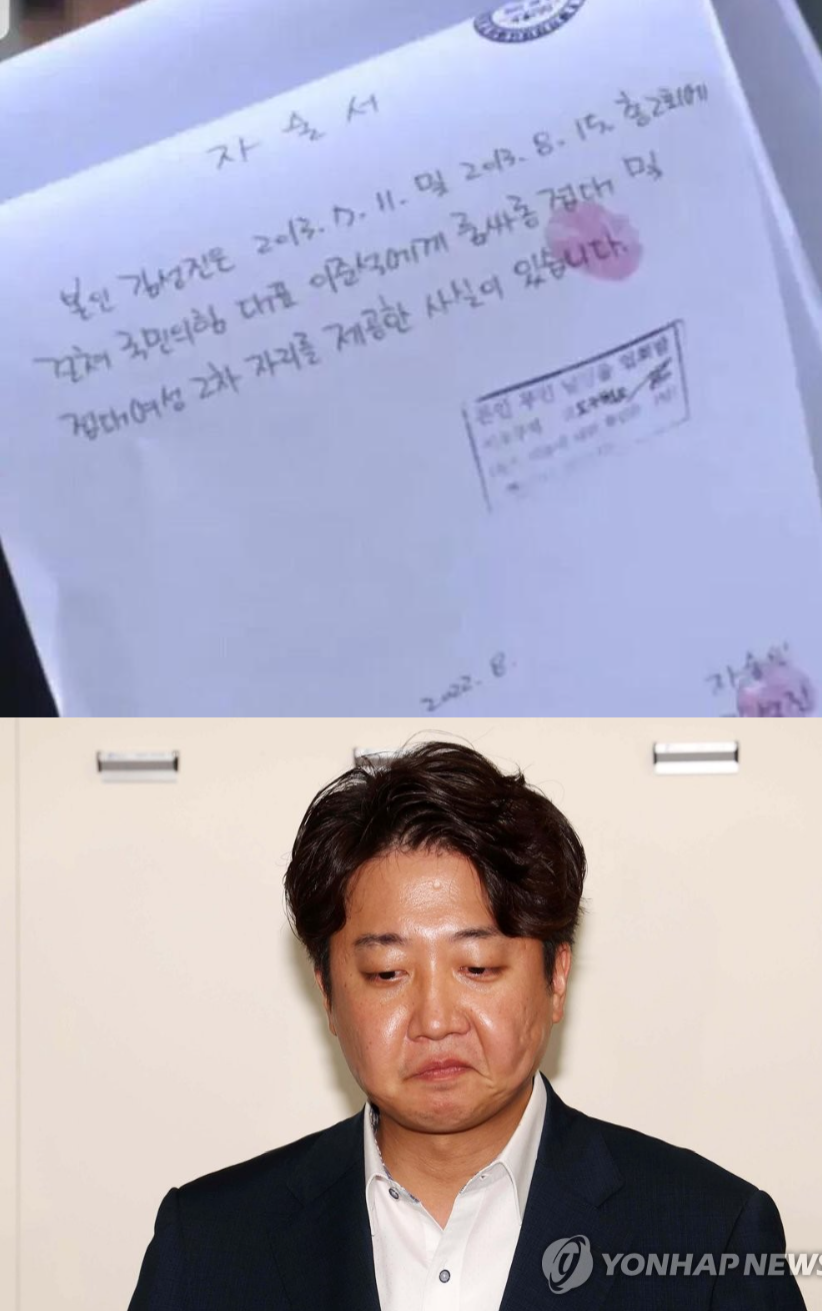 자 술 서
본인 김성진은 2013. 7. 11. 및 2013. 8. 15. 총 2회에
걸쳐 국민의힘 대표 이준석에게 룸싸롱 접대 및
접대여성 2차 자리를 제공한 사실이 있습니다.
본인 무인
2022. 8.
자술인
YONHAP NEWS